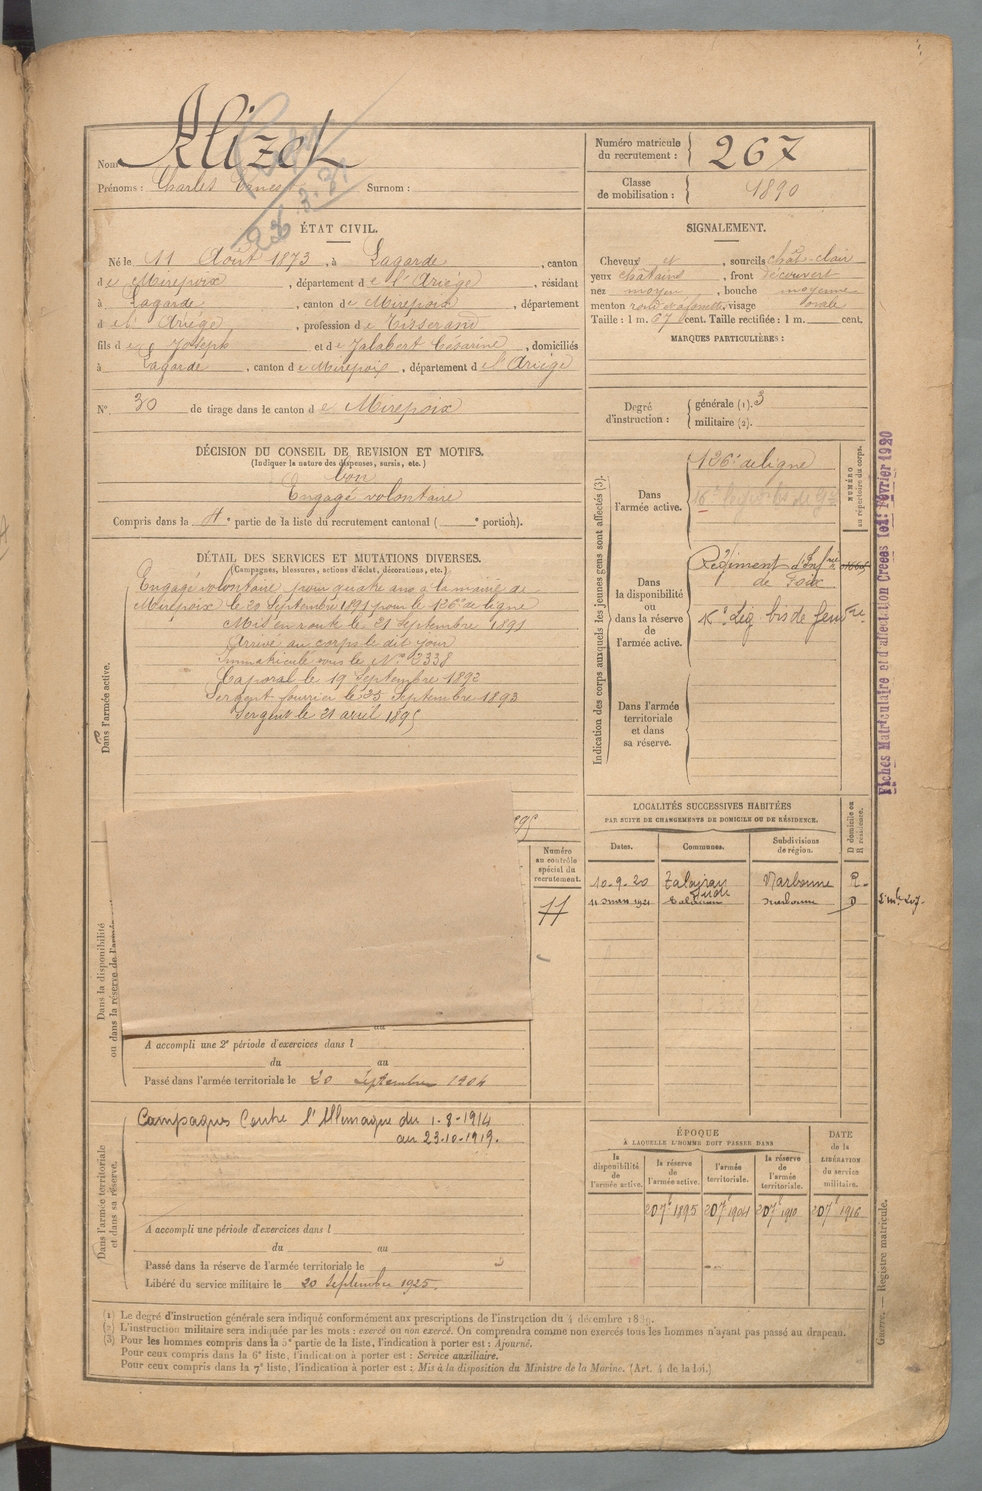 Nom Alizet
Prénoms : Charles Ernest Surnom :
Numéro matricule du recrutement : 267
Classe de mobilisation : 1890
ÉTAT CIVIL.
Né le 11 Août 1873, à Lagarde, canton
de Mirepoix, département de l'Ariège, résidant
à Lagarde, canton de Mirepoix, département
de l'Ariège, profession de Tisserand
fils de Joseph et de Jalabert Césarine, domiciliés
à Lagarde, canton de Mirepoix, département de l'Ariège
N° 30 de tirage dans le canton de Mirepoix
SIGNALEMENT.
Cheveux et, sourcils chât-clair
yeux châtains, front découvert
nez moyen, bouche moyenne
menton rond visage ovale
Taille : 1 m. 67 cent. Taille rectifiée : 1 m. cent.
MARQUES PARTICULIÈRES :
Degré d'instruction : générale (1). 3
militaire (2).
DÉCISION DU CONSEIL DE REVISION ET MOTIFS.
(Indiquer la nature des dispenses, sursis, etc.)
bon
Engagé volontaire
Compris dans la 4e partie de la liste du recrutement cantonal ( e portion).
DÉTAIL DES SERVICES ET MUTATIONS DIVERSES.
(Campagnes, blessures, actions d'éclat, décorations, etc.)
Dans l'armée active.
Engagé volontaire pour quatre ans à la mairie de
Mirepoix le 20 Septembre 1891 pour le 126e de ligne
Mis en route le 21 Septembre 1891
Arrivé au corps le dit jour
Immatriculé sous le N° 2338
Caporal le 19 Septembre 1892
Sergent fourrier le 25 Septembre 1893
Sergent le 21 avril 1895
Indication des corps auxquels les jeunes gens sont affectés (3).
NUMÉRO au répertoire du corps.
Dans l'armée active.
126e de ligne
Dans la disponibilité ou dans la réserve de l'armée active.
Régiment d'Infrie
de Foix
Lég bis de gendrie
Dans l'armée territoriale et dans sa réserve.
Fiches Matriculaire et d'affectation Créées le 1er Février 1920
LOCALITÉS SUCCESSIVES HABITÉES
PAR SUITE DE CHANGEMENTS DE DOMICILE OU DE RÉSIDENCE.
Dates. Communes. Subdivisions de région. D domicile ou R résidence.
10-9-20 Talairan Narbonne R.
11 mars 1921 Talairan Narbonne D
Numéro au contrôle spécial du recrutement.
11
Dans la disponibilité ou dans la réserve de l'armée
au
A accompli une 2e période d'exercices dans l
du au
Passé dans l'armée territoriale le 20 Septembre 1904
Dans l'armée territoriale et dans sa réserve.
Campagnes Contre l'Allemagne du 1-8-1914
au 23-10-1919.
A accompli une période d'exercices dans l
du au
Passé dans la réserve de l'armée territoriale le
Libéré du service militaire le 20 Septembre 1925.
ÉPOQUE
À LAQUELLE L'HOMME DOIT PASSER DANS
DATE de la LIBÉRATION du service militaire.
la disponibilité de l'armée active. la réserve de l'armée active. l'armée territoriale. la réserve de l'armée territoriale.
20 7e 1895 20 7e 1904 20 7e 1910 20 7e 1916
Guerre. — Registre matricule.
(1) Le degré d'instruction générale sera indiqué conformément aux prescriptions de l'instruction du 4 décembre 1889.
(2) L'instruction militaire sera indiquée par les mots : exercé ou non exercé. On comprendra comme non exercés tous les hommes n'ayant pas passé au drapeau.
(3) Pour les hommes compris dans la 5e partie de la liste, l'indication à porter est : Ajourné.
Pour ceux compris dans la 6e liste, l'indication à porter est : Service auxiliaire.
Pour ceux compris dans la 7e liste, l'indication à porter est : Mis à la disposition du Ministre de la Marine. (Art. 4 de la loi.)